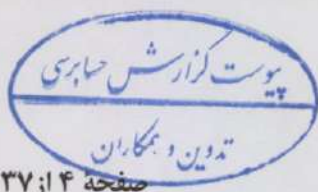 پیوست گزارش حسابرسی
تدوین و همکاران
صفحهٔ ۴ از ۳۷